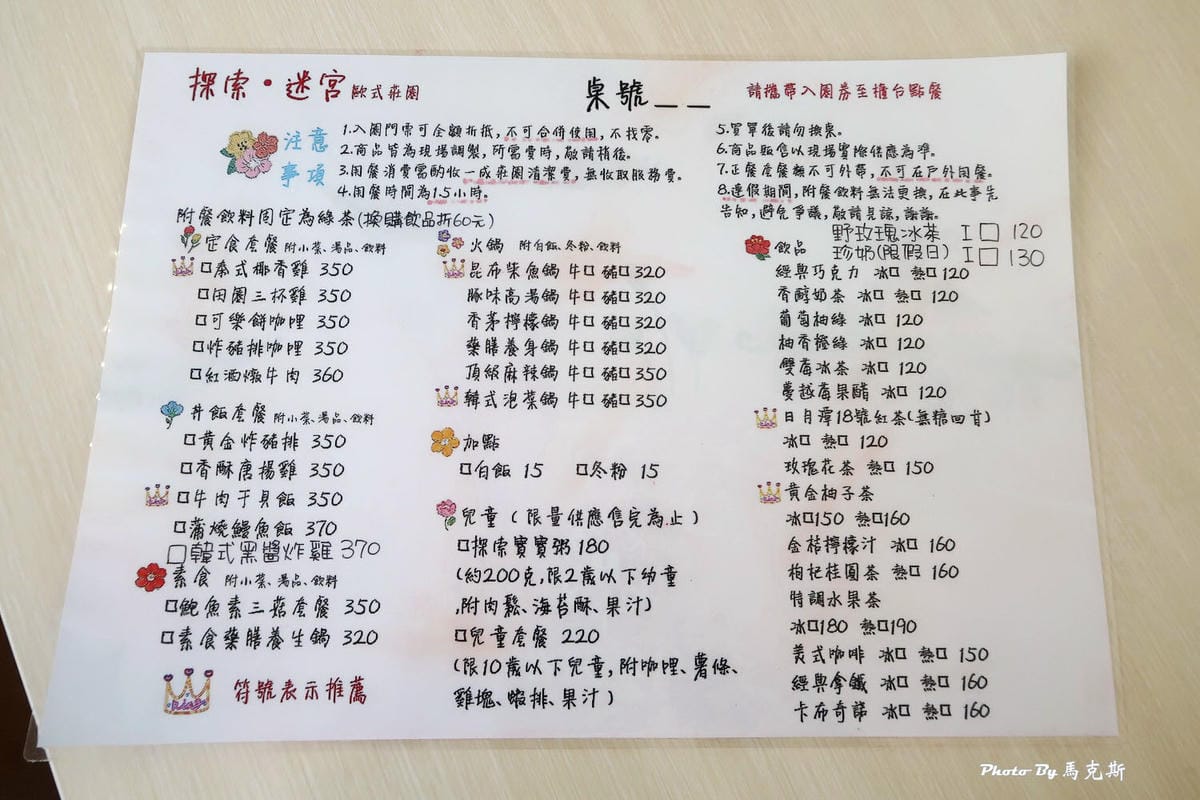 探索·迷宮歐式莊園
桌號＿＿
請攜帶入園券至櫃台點餐
注意
事項
1.入園門票可全額折抵,不可合併使用,不找零。
2.商品皆為現場調製,所需費時,敬請稍後。
3.用餐消費需酌收一成莊園清潔費,無收取服務費。
4.用餐時間為1.5小時。
5.買單後請勿換桌。
6.商品販售以現場實際供應為準。
7.正餐套餐類不可外帶,不可在戶外用餐。
8.連假期間,附餐飲料無法更換,在此事先
告知,避免爭議,敬請見諒,謝謝。
附餐飲料固定為綠茶(換購飲品折60元)
定食套餐 附小菜、湯品、飲料
□泰式椰香雞 350
□田園三杯雞 350
□可樂餅咖哩 350
□炸豬排咖哩 350
□紅酒燉牛肉 360
丼飯套餐 附小菜、湯品、飲料
□黃金炸豬排 350
□香酥唐揚雞 350
□牛肉干貝飯 350
□蒲燒鰻魚飯 370
□韓式黑醬炸雞 370
素食 附小菜、湯品、飲料
□鮑魚素三菇套餐 350
□素食藥膳養生鍋 320
符號表示推薦
火鍋 附白飯、冬粉、飲料
昆布柴魚鍋 牛□ 豬□320
豚味高湯鍋 牛□ 豬□320
香茅檸檬鍋 牛□ 豬□320
藥膳養身鍋 牛□ 豬□320
頂級麻辣鍋 牛□ 豬□350
韓式泡菜鍋 牛□ 豬□350
加點
□白飯 15 □冬粉 15
兒童(限量供應售完為止)
□探索寶寶粥 180
(約200克,限2歲以下幼童
,附肉鬆、海苔酥、果汁)
□兒童套餐 220
(限10歲以下兒童,附咖哩、薯條、
雞塊、蝦排、果汁)
野玫瑰冰茶 I□ 120
飲品 珍奶(限假日) I□ 130
經典巧克力 冰□ 熱□ 120
香醇奶茶 冰□ 熱□ 120
葡萄柚綠 冰□ 120
柚香橙綠 冰□ 120
雙莓冰茶 冰□ 120
蔓越莓果醋 冰□ 120
日月潭18號紅茶(無糖回甘)
冰□ 熱□ 120
玫瑰花茶 熱□ 150
黃金柚子茶
冰□150 熱□160
金桔檸檬汁 冰□ 160
枸杞桂圓茶 熱□ 160
特調水果茶
冰□180 熱□190
美式咖啡 冰□ 熱□ 150
經典拿鐵 冰□ 熱□ 160
卡布奇諾 冰□ 熱□ 160
Photo By 馬克斯